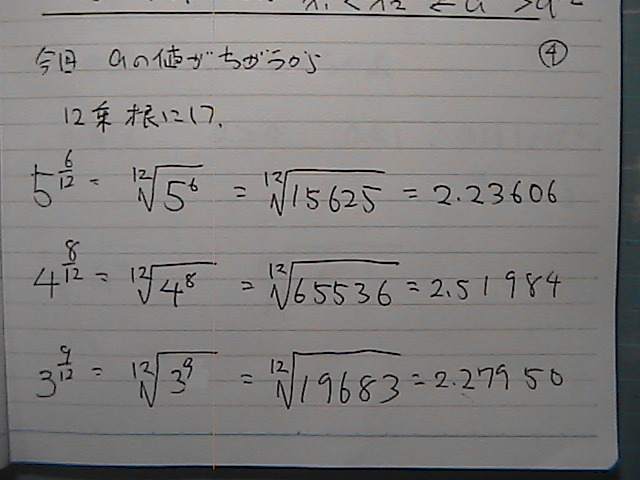 今回 aの値がちがうから ④
12乗根にして、
5^{6/12} = ¹²√5⁶ = ¹²√15625 = 2.23606
4^{8/12} = ¹²√4⁸ = ¹²√65536 = 2.51984
3^{9/12} = ¹²√3⁹ = ¹²√19683 = 2.27950